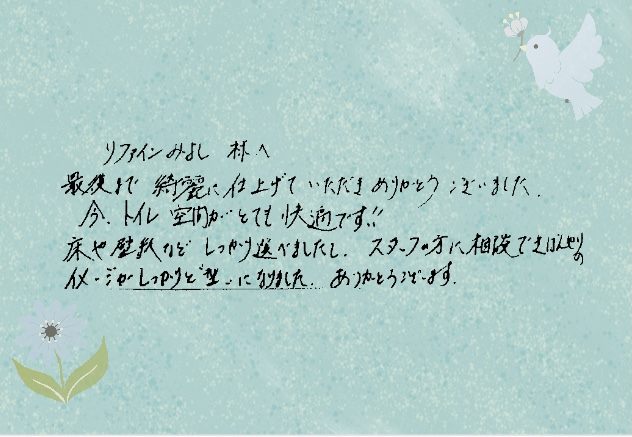 リファインみよし 様へ
最後まで 綺麗に仕上げて いただき ありがとう ございました.
今、トイレ 空間がとても 快適です!!
床や壁紙など しっかり選べましたし、スタッフの方に相談でき ぼんやりの
イメージがしっかりと"型"になりました. ありがとうございます.